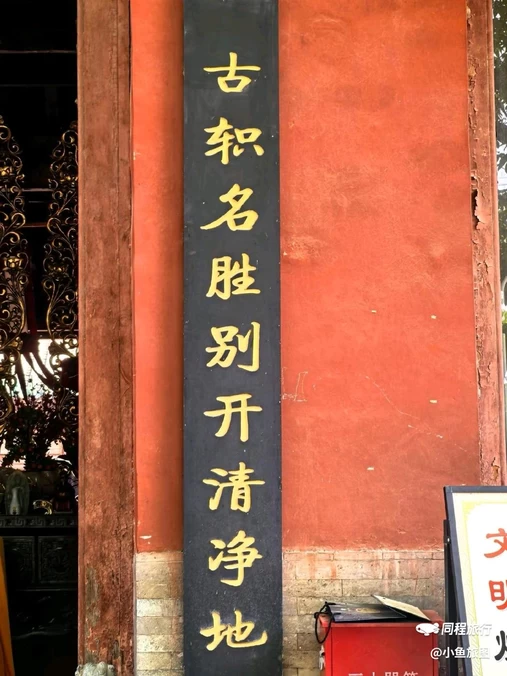 古轵名胜别开清净地
文明
同程旅行
@小鱼旅图